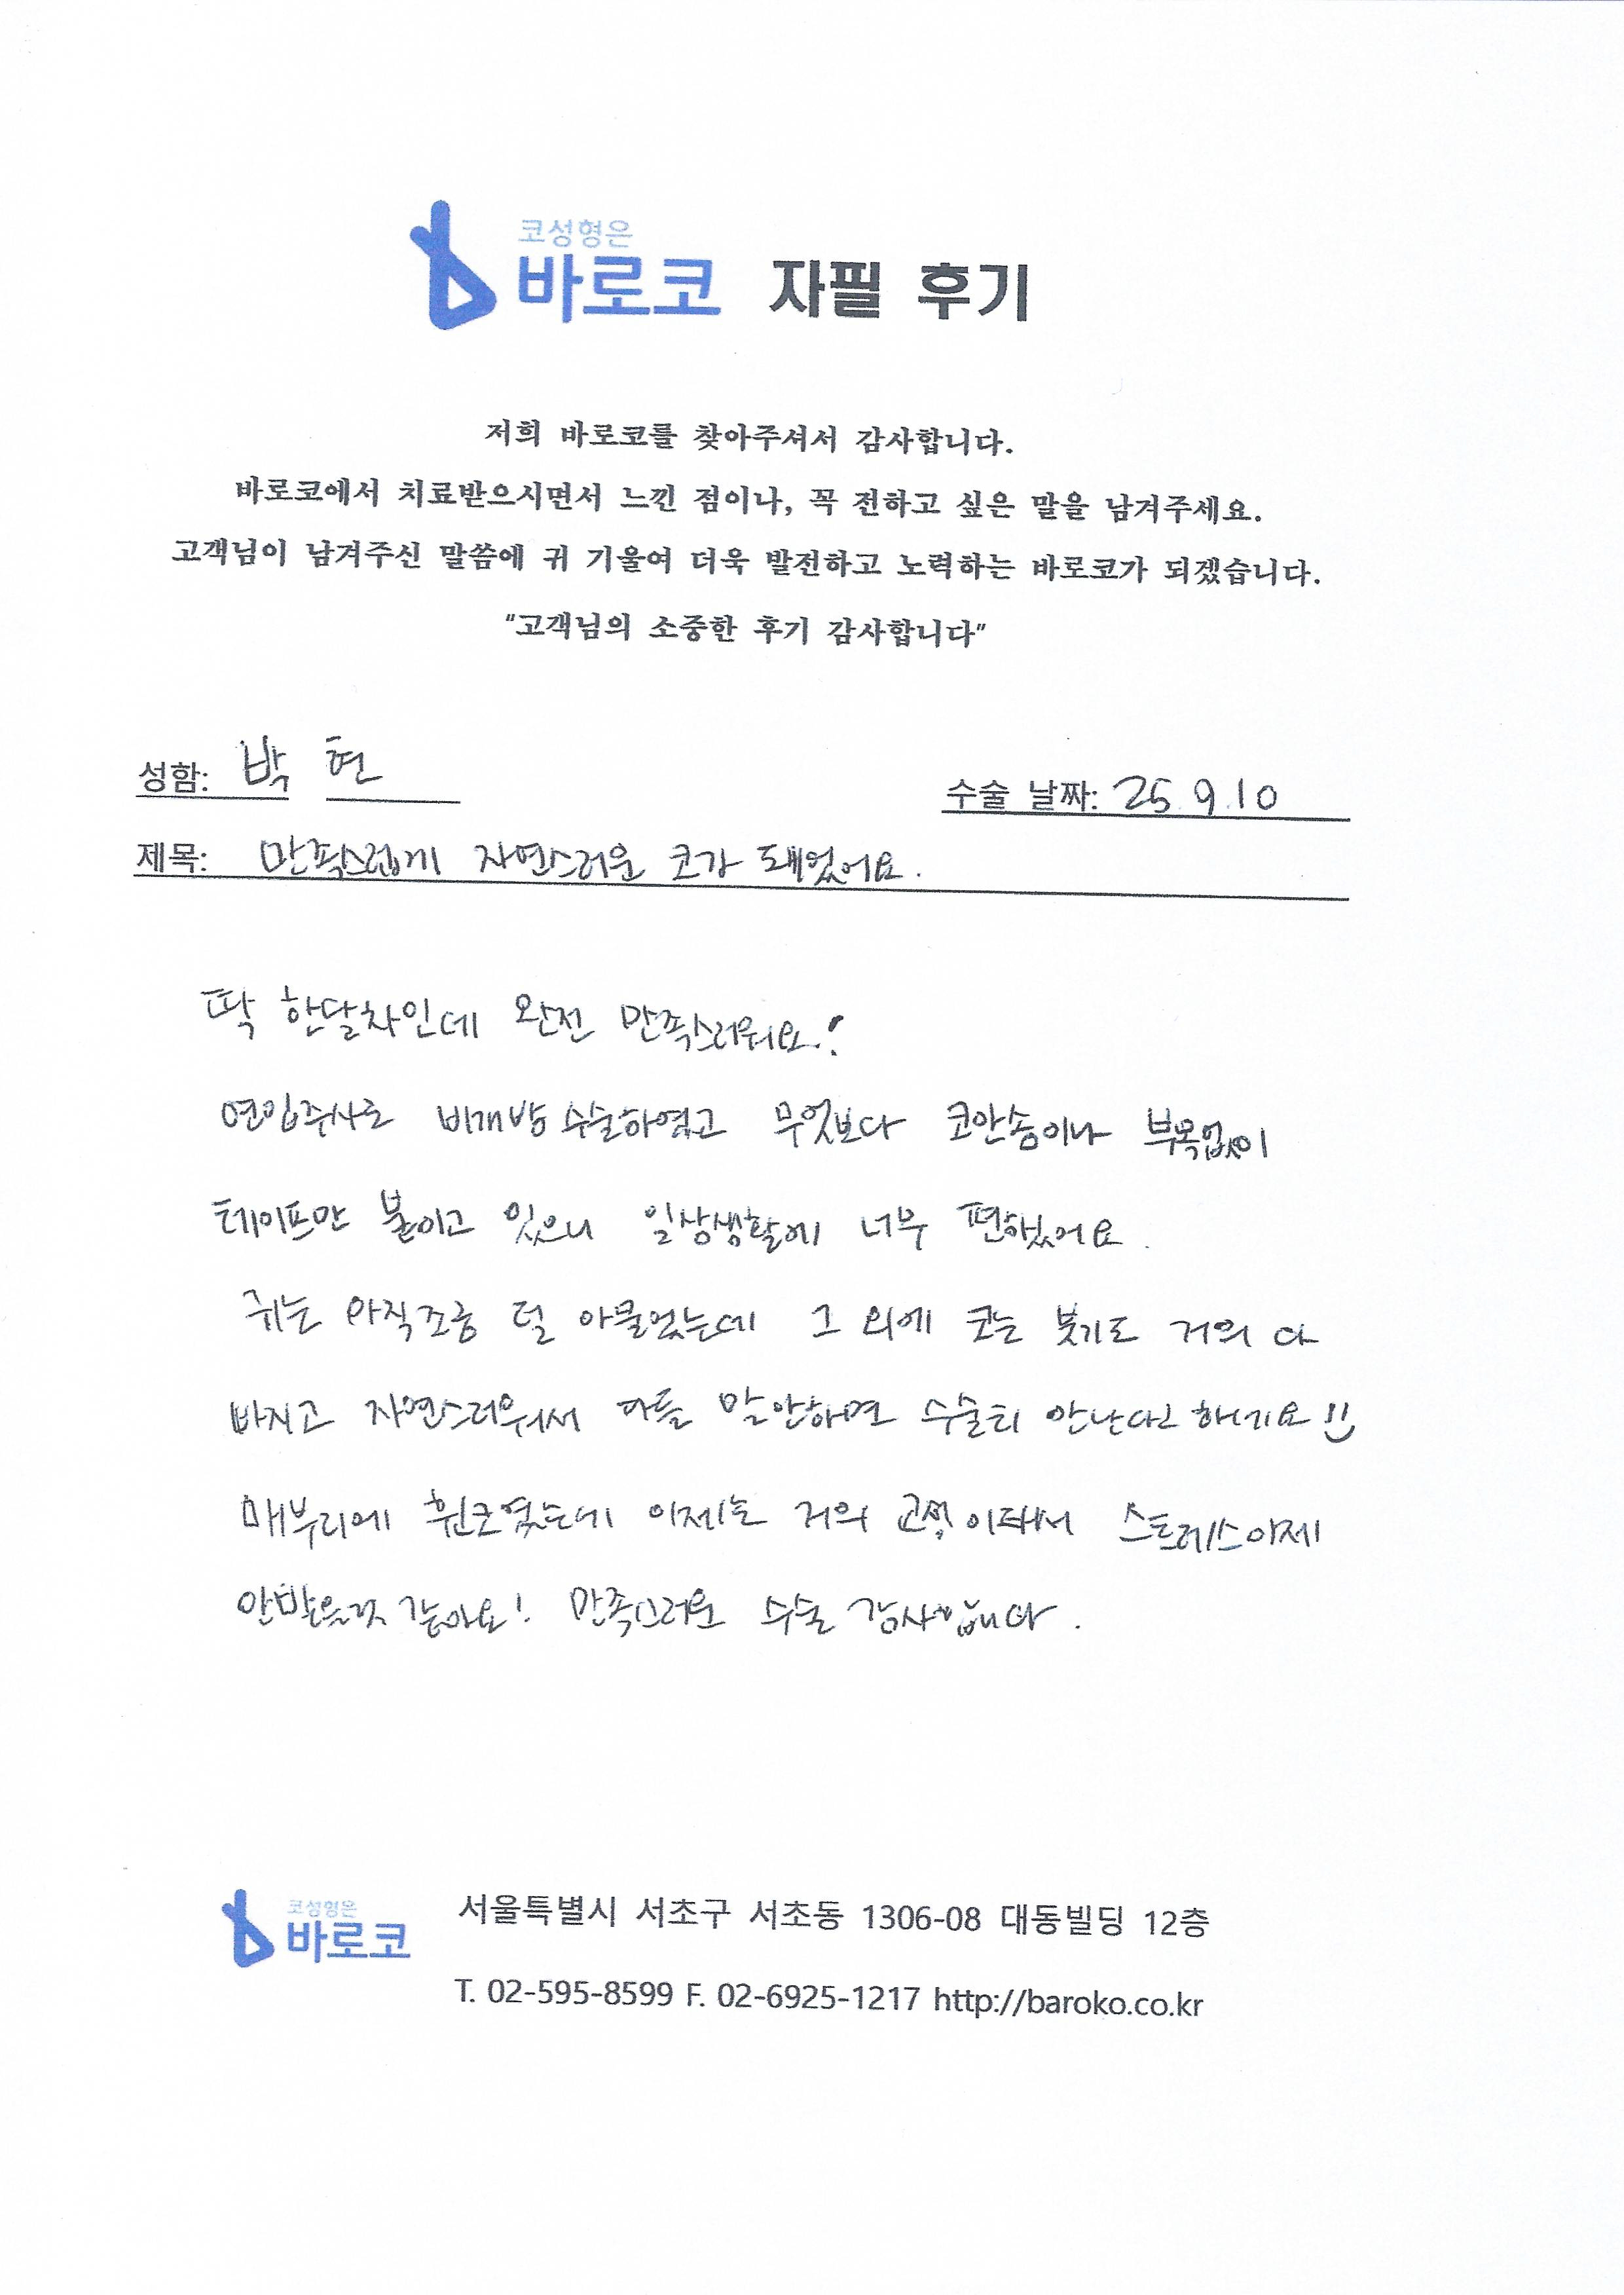 코성형은
바로코 자필 후기
저희 바로코를 찾아주셔서 감사합니다.
바로코에서 치료받으시면서 느낀 점이나, 꼭 전하고 싶은 말을 남겨주세요.
고객님이 남겨주신 말씀에 귀 기울여 더욱 발전하고 노력하는 바로코가 되겠습니다.
“고객님의 소중한 후기 감사합니다”
성함: 박 현
수술 날짜: 25.9.10
제목: 만족스럽게 자연스러운 코가 돼었어요.
딱 한달차인데 완전 만족스러워요!
비개방 수술하였고 무엇보다 코안솜이나 부목없이
테이프만 붙이고 있으니 일상생활에 너무 편했어요.
귀는 아직조금 덜 아물었는데 그 외에 코는 붓기도 거의 다
빠지고 자연스러워서 다들 말안하면 수술티 안난다고 하네요!!
매부리에 휜코였는데 이제는 거의 교정이돼서 스트레스이제
안받을것 같아요! 만족스러운 수술 감사합니다.
코성형은
바로코
서울특별시 서초구 서초동 1306-08 대동빌딩 12층
T. 02-595-8599 F. 02-6925-1217 http://baroko.co.kr